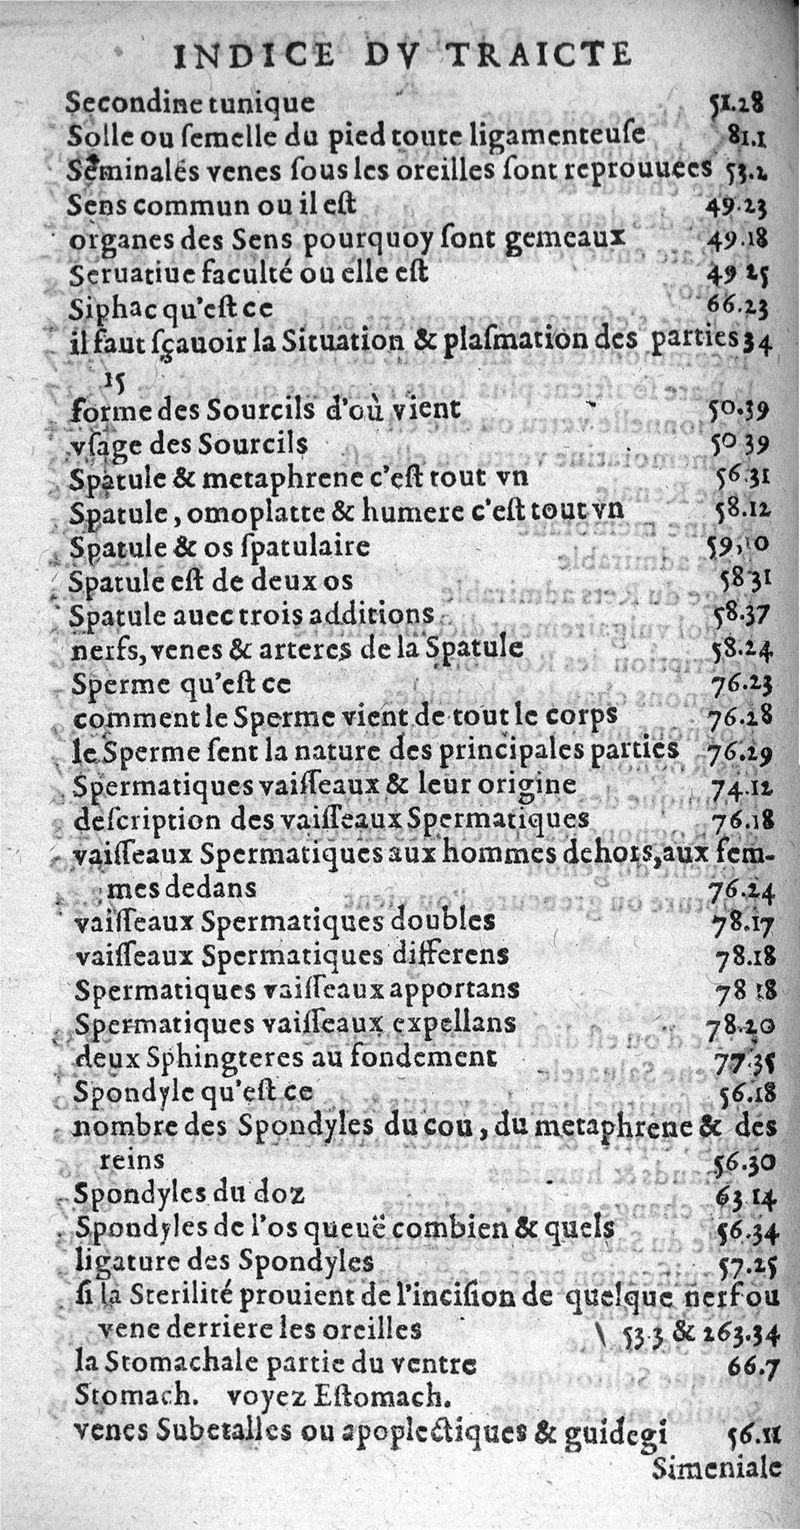 INDICE DV TRAICTE
Secondine tunique 51.28
Solle ou ſemelle du pied toute ligamenteuſe 81.1
Seminales venes ſous les oreilles ſont reprouuees 53.2
Sens commun ou il eſt 49.23
organes des Sens pourquoy ſont gemeaux 49.18
Seruatiue faculté ou elle eſt 49 25
Siphac qu'eſt ce 66.23
il faut ſçauoir la Situation & plaſmation des parties 34
15
forme des Sourcils d'où vient 50.39
vſage des Sourcils 50 39
Spatule & metaphrene c'eſt tout vn 56.31
Spatule, omoplatte & humere c'eſt tout vn 58.12
Spatule & os ſpatulaire
Spatule eſt de deux os 58 31
Spatule auec trois additions 58.37
nerfs, venes & arteres de la Spatule 58.24
Sperme qu'eſt ce 76.23
comment le Sperme vient de tout le corps 76.28
le Sperme ſent la nature des principales parties 76.29
Spermatiques vaiſſeaux & leur origine 74.12
deſcription des vaiſſeaux Spermatiques 76.18
vaiſſeaux Spermatiques aux hommes dehors, aux fem-
mes dedans 76.24
vaiſſeaux Spermatiques doubles 78.17
vaiſſeaux Spermatiques differens 78.18
Spermatiques vaiſſeaux apportans 78 18
Spermatiques vaiſſeaux expellans 78.20
deux Sphingteres au fondement 77.35
Spondyle qu'eſt ce 56.18
nombre des Spondyles du cou, du metaphrene & des
reins 56.30
Spondyles du doz 63 14
Spondyles de l'os queuë combien & quels 56.34
ligature des Spondyles 57.25
ſi la Sterilité prouient de l'inciſion de quelque nerf ou
vene derriere les oreilles \ 53 3 & 263.34
la Stomachale partie du ventre 66.7
Stomach. voyez Eſtomach.
venes Subetalles ou apoplectiques & guidegi 56.11
Simeniale